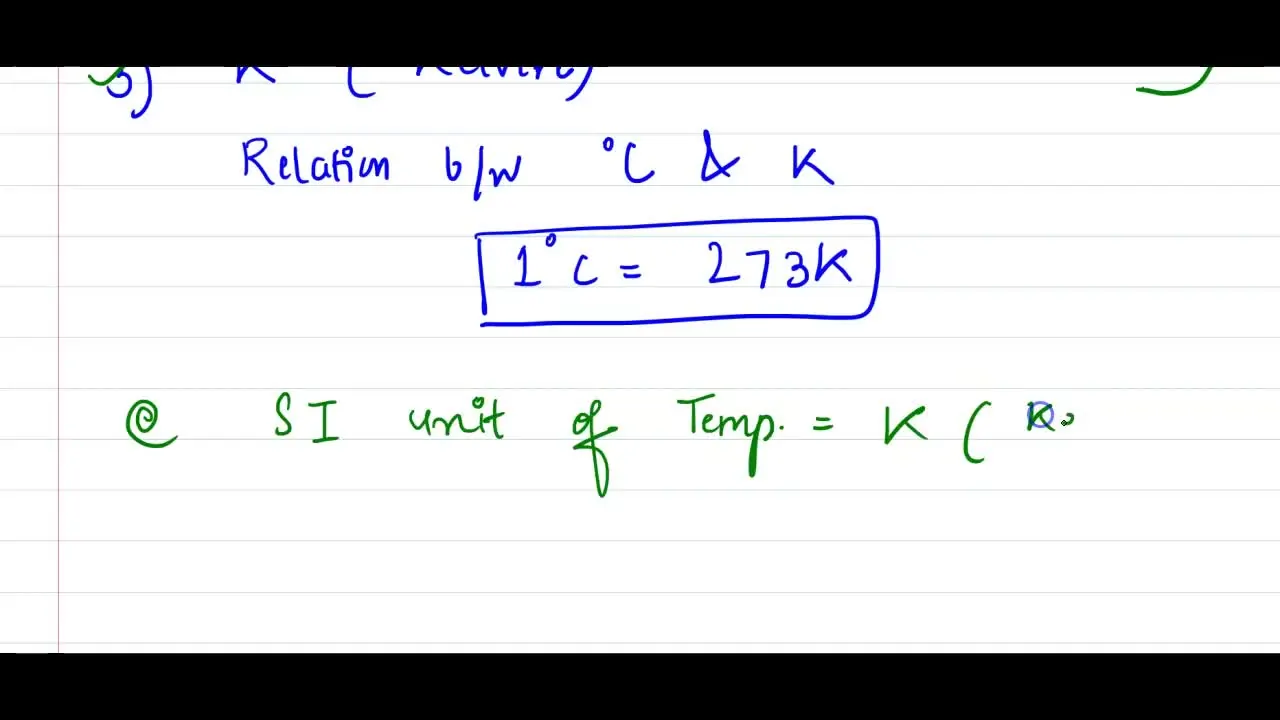 3) K ( Kelvin)
Relation b/w °C & K
1°C = 273K
@ SI unit of Temp. = K ( K